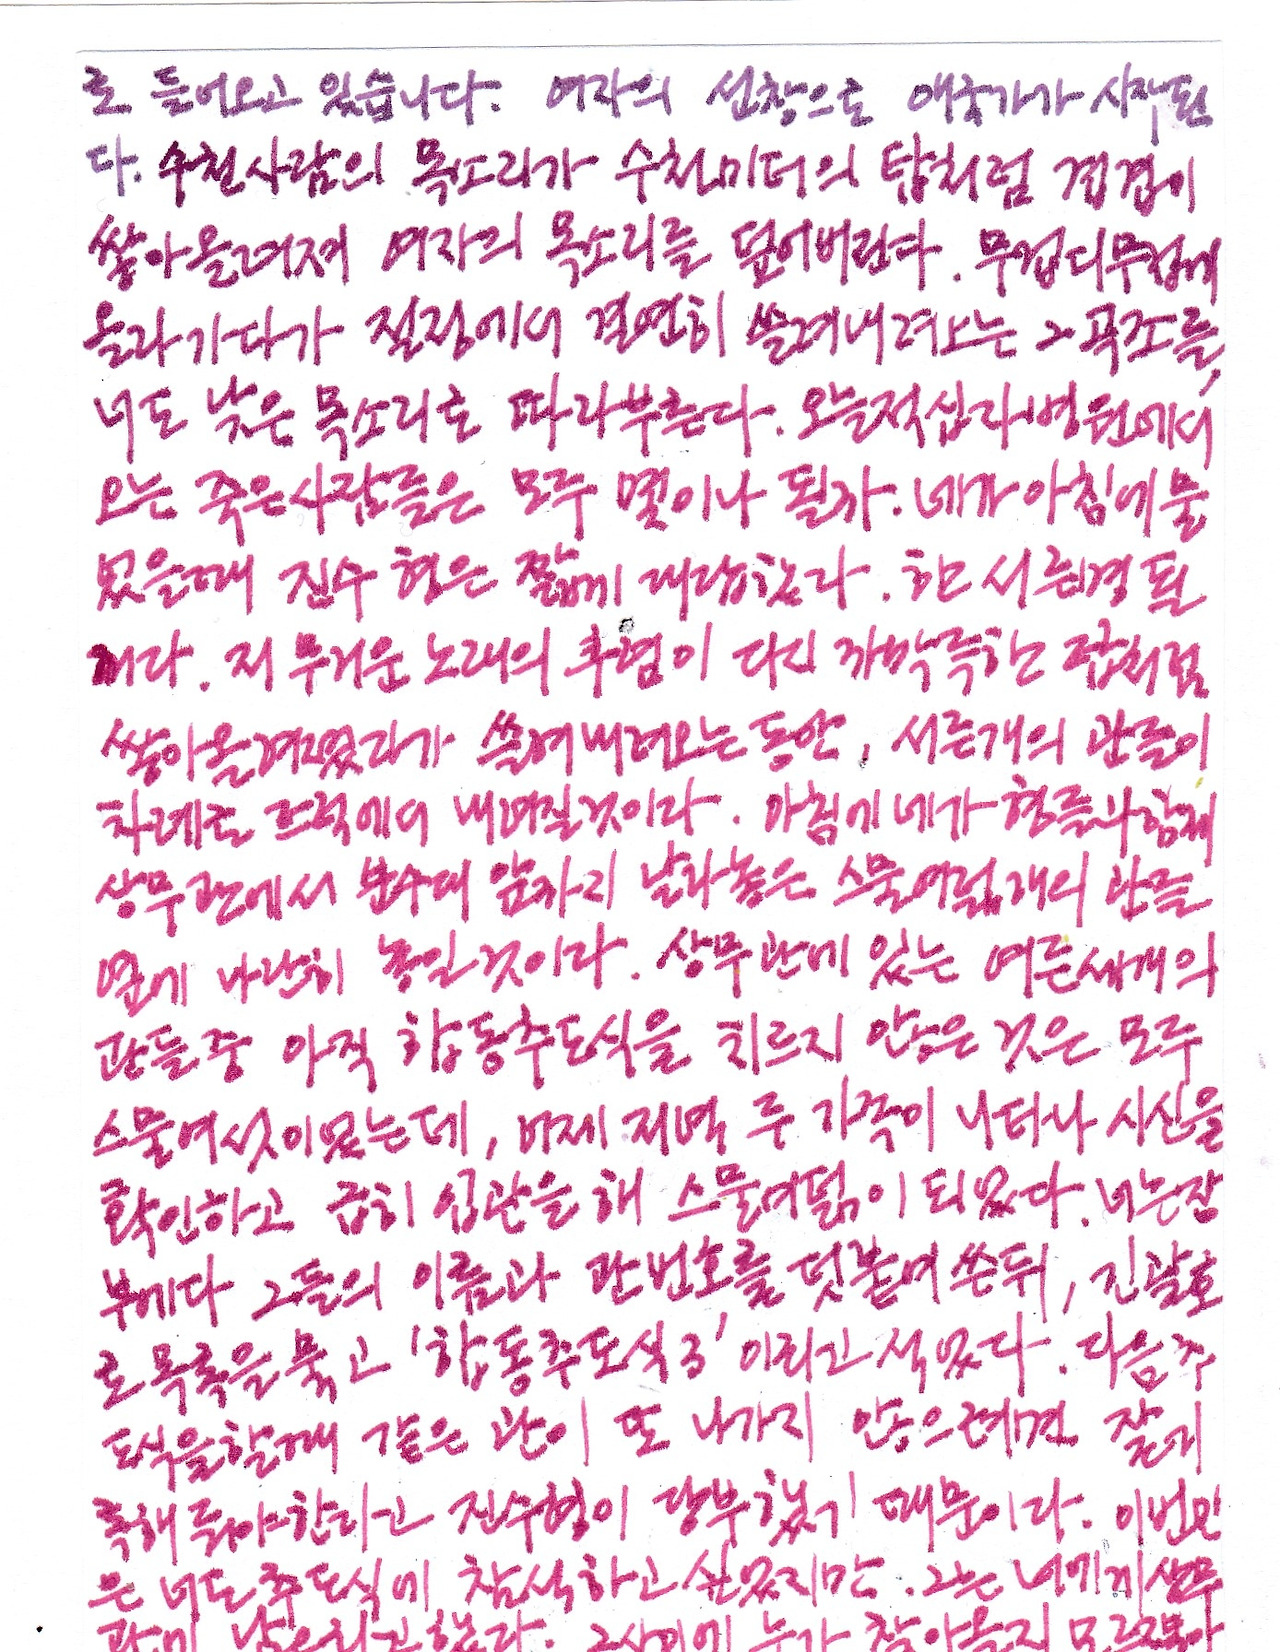 로 들어오고 있습니다. 여자의 선창으로 애국가가 시작된
다. 수천사람의 목소리가 수천미터의 탑처럼 겹겹이
쌓아올려져 여자의 목소리를 덮어버린다. 무겁디무겁게
올라가다가 절정에서 결연히 쓸려내려오는 그 곡조를,
너도 낮은 목소리로 따라부른다. 오늘 적십자병원에서
오는 죽은사람들은 모두 몇이나 될까. 네가 아침에 물
었을때 진수 형은 짧게 대답했다. 한 서른명 될
꺼다. 저 무거운 노래의 후렴이 다시 까마득한 탑처럼
쌓아올려졌다가 쓸려내려오는 동안, 서른개의 관들이
차례로 트럭에서 내려질것이다. 아침에 네가 형들과 함께
상무관에서 분수대 앞까지 날라놓은 스물여덟개의 관들
옆에 나란히 놓일것이다. 상무관에 있는 여든세개의
관들중 아직 합동추도식을 치르지 않은 것은 모두
스물여섯이었는데, 어제 저녁 두 가족이 나타나 시신을
확인하고 급히 입관을 해 스물여덟이 되었다. 너는 장
부에다 그들의 이름과 관번호를 덧붙여 쓴뒤, 긴괄호
로 목록을 묶고 '합동추도식 3' 이라고 적었다. 다음 추
도식을 할때 같은 관이 또 나가지 않으려면 잘 기
록해 둬야한다고 진수형이 당부했기 때문이다. 이번만
은 너도 추도식에 참석하고싶었지만. 그는 너에게 상무
관에 남으라고 했다. 그사이에 누가 찾아올지 모르잖아